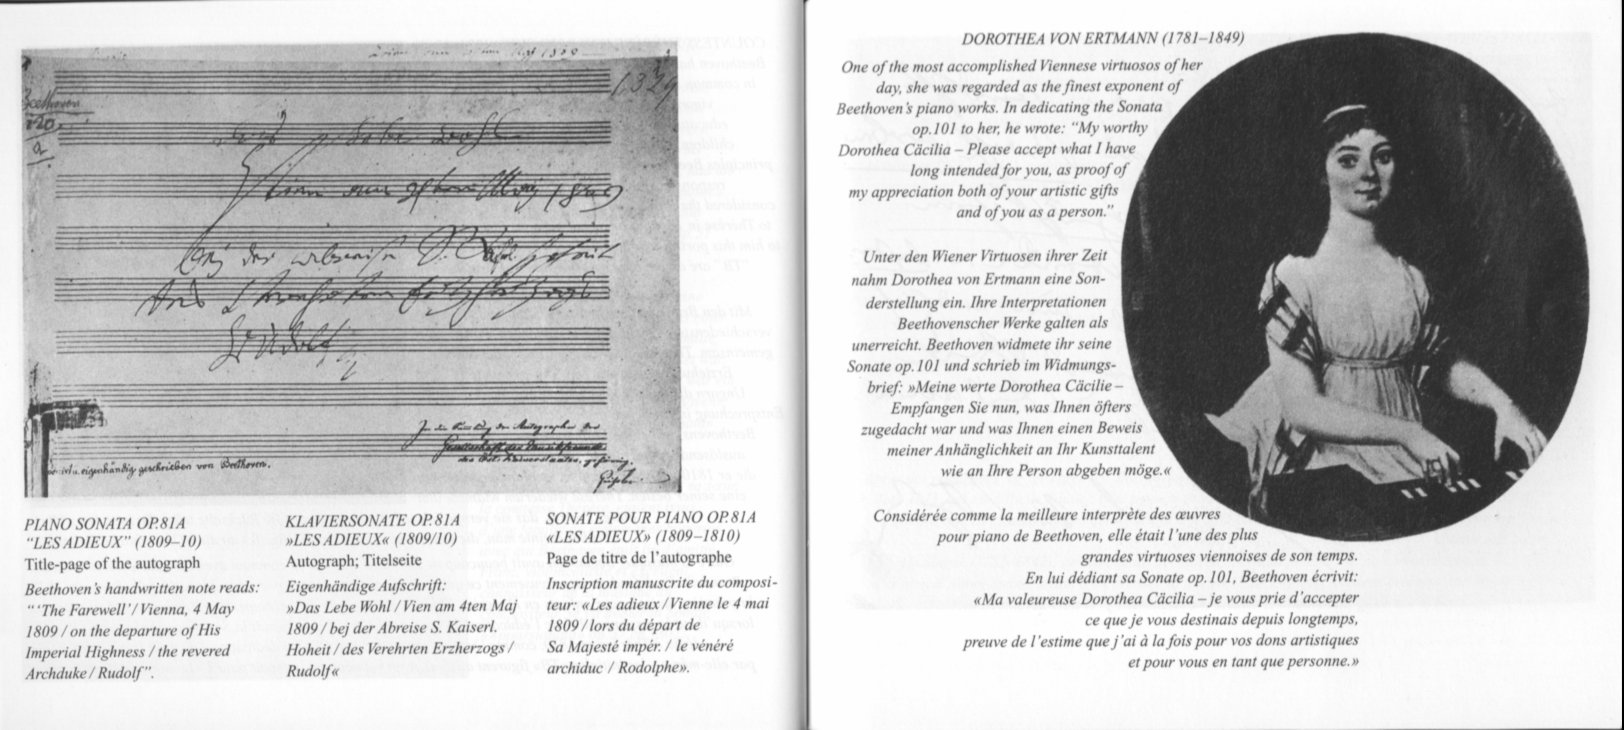 1329
Beethoven
Das Lebe Wohl
Wien am 4ten May 1809
bej der Abreise S. Kaiserl. Hoheit
des Verehrten Erzherzogs
Rudolf
In die Sammlung der Autographen der
Gesellschaft der Musikfreunde
des Öst. Kaiserstaates
eigenhändig geschrieben von Beethoven.
PIANO SONATA OP.81A
“LES ADIEUX” (1809–10)
Title-page of the autograph
Beethoven’s handwritten note reads:
“‘The Farewell’ / Vienna, 4 May
1809 / on the departure of His
Imperial Highness / the revered
Archduke / Rudolf”.
KLAVIERSONATE OP.81A
»LES ADIEUX« (1809/10)
Autograph; Titelseite
Eigenhändige Aufschrift:
»Das Lebe Wohl / Vien am 4ten Maj
1809 / bej der Abreise S. Kaiserl.
Hoheit / des Verehrten Erzherzogs /
Rudolf«
SONATE POUR PIANO OP.81A
«LES ADIEUX» (1809–1810)
Page de titre de l’autographe
Inscription manuscrite du composi-
teur: «Les adieux / Vienne le 4 mai
1809 / lors du départ de
Sa Majesté impér. / le vénéré
archiduc / Rodolphe».
DOROTHEA VON ERTMANN (1781–1849)
One of the most accomplished Viennese virtuosos of her
day, she was regarded as the finest exponent of
Beethoven’s piano works. In dedicating the Sonata
op.101 to her, he wrote: “My worthy
Dorothea Cäcilia – Please accept what I have
long intended for you, as proof of
my appreciation both of your artistic gifts
and of you as a person.”
Unter den Wiener Virtuosen ihrer Zeit
nahm Dorothea von Ertmann eine Son-
derstellung ein. Ihre Interpretationen
Beethovenscher Werke galten als
unerreicht. Beethoven widmete ihr seine
Sonate op.101 und schrieb im Widmungs-
brief: »Meine werte Dorothea Cäcilie –
Empfangen Sie nun, was Ihnen öfters
zugedacht war und was Ihnen einen Beweis
meiner Anhänglichkeit an Ihr Kunsttalent
wie an Ihre Person abgeben möge.«
Considérée comme la meilleure interprète des œuvres
pour piano de Beethoven, elle était l’une des plus
grandes virtuoses viennoises de son temps.
En lui dédiant sa Sonate op.101, Beethoven écrivit:
«Ma valeureuse Dorothea Cäcilia – je vous prie d’accepter
ce que je vous destinais depuis longtemps,
preuve de l’estime que j’ai à la fois pour vos dons artistiques
et pour vous en tant que personne.»